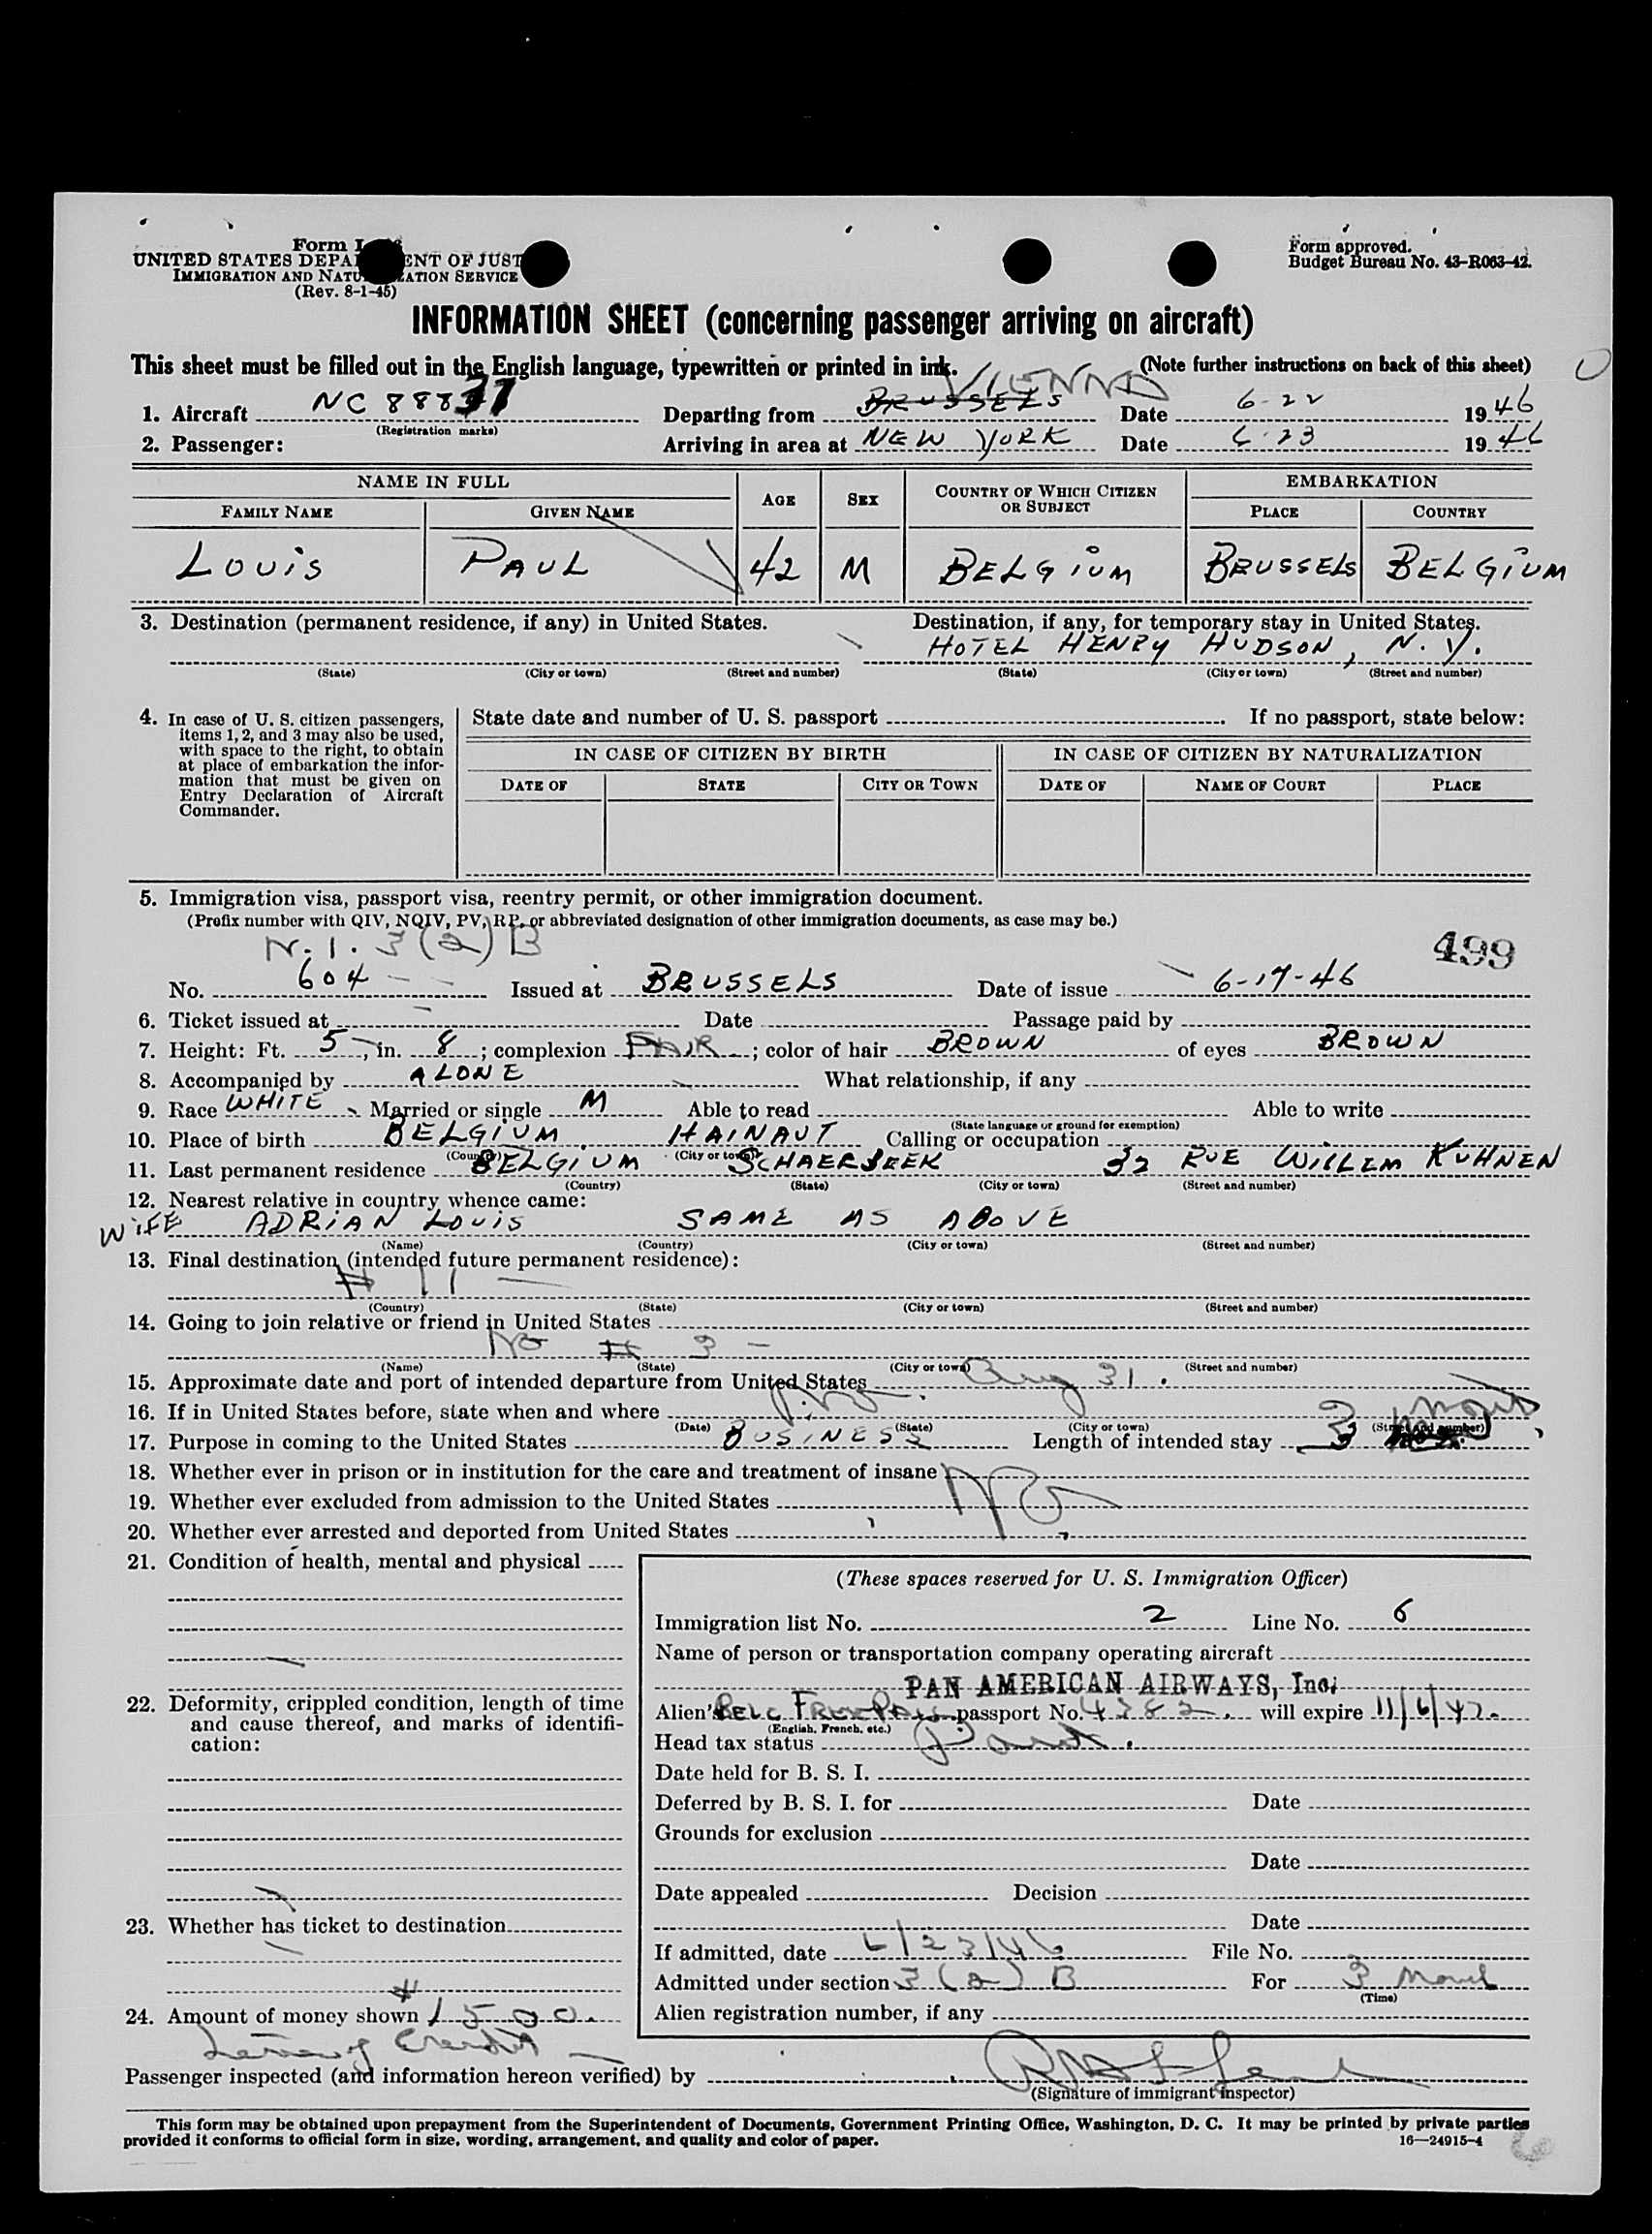 Form I
UNITED STATES DEPA ENT OF JUST
IMMIGRATION AND NATU ZATION SERVICE
(Rev. 8-1-45)
Form approved.
Budget Bureau No. 43-R063-42.
INFORMATION SHEET (concerning passenger arriving on aircraft)
This sheet must be filled out in the English language, typewritten or printed in ink. (Note further instructions on back of this sheet)
VIENNA
1. Aircraft NC 88837 Departing from BRUSSELS Date 6-22 1946
(Registration marks)
2. Passenger: Arriving in area at NEW YORK Date 6-23 1946
NAME IN FULL AGE SEX COUNTRY OF WHICH CITIZEN OR SUBJECT EMBARKATION
FAMILY NAME GIVEN NAME PLACE COUNTRY
LOUIS PAUL 42 M BELGIUM BRUSSELS BELGIUM
3. Destination (permanent residence, if any) in United States. Destination, if any, for temporary stay in United States.
HOTEL HENRY HUDSON, N.Y.
(State) (City or town) (Street and number) (State) (City or town) (Street and number)
4. In case of U. S. citizen passengers, items 1, 2, and 3 may also be used, with space to the right, to obtain at place of embarkation the information that must be given on Entry Declaration of Aircraft Commander.
State date and number of U. S. passport If no passport, state below:
IN CASE OF CITIZEN BY BIRTH IN CASE OF CITIZEN BY NATURALIZATION
DATE OF STATE CITY OR TOWN DATE OF NAME OF COURT PLACE
5. Immigration visa, passport visa, reentry permit, or other immigration document.
(Prefix number with QIV, NQIV, PV, RP, or abbreviated designation of other immigration documents, as case may be.)
N.I. 3(2)B
499
No. 604 Issued at BRUSSELS Date of issue 6-17-46
6. Ticket issued at Date Passage paid by
7. Height: Ft. 5, in. 8; complexion FAIR; color of hair BROWN of eyes BROWN
8. Accompanied by ALONE What relationship, if any
9. Race WHITE Married or single M Able to read Able to write
(State language or ground for exemption)
10. Place of birth BELGIUM HAINAUT Calling or occupation
(Country) (City or town)
11. Last permanent residence BELGIUM SCHAERBEEK 32 RUE WILLEM KUHNEN
(Country) (State) (City or town) (Street and number)
12. Nearest relative in country whence came:
WIFE ADRIAN LOUIS SAME AS ABOVE
(Name) (Country) (City or town) (Street and number)
13. Final destination (intended future permanent residence):
# 11 —
(Country) (State) (City or town) (Street and number)
14. Going to join relative or friend in United States
No # 3 —
(Name) (State) (City or town) (Street and number)
15. Approximate date and port of intended departure from United States Aug 31.
16. If in United States before, state when and where
(Date) (State) (City or town) (Street and number)
3
17. Purpose in coming to the United States BUSINESS Length of intended stay 3
18. Whether ever in prison or in institution for the care and treatment of insane
19. Whether ever excluded from admission to the United States No
20. Whether ever arrested and deported from United States
21. Condition of health, mental and physical
22. Deformity, crippled condition, length of time and cause thereof, and marks of identification:
23. Whether has ticket to destination
24. Amount of money shown $1500.
(These spaces reserved for U. S. Immigration Officer)
Immigration list No. 2 Line No. 6
Name of person or transportation company operating aircraft
PAN AMERICAN AIRWAYS, Inc.
Alien's passport No. 4382. will expire 11/6/47.
(English, French, etc.)
Head tax status
Date held for B. S. I.
Deferred by B. S. I. for Date
Grounds for exclusion
Date
Date appealed Decision
Date
If admitted, date 6/23/46 File No.
Admitted under section 3(2)B For 3
(Time)
Alien registration number, if any
Passenger inspected (and information hereon verified) by
(Signature of immigrant inspector)
This form may be obtained upon prepayment from the Superintendent of Documents, Government Printing Office, Washington, D. C. It may be printed by private parties
provided it conforms to official form in size, wording, arrangement, and quality and color of paper. 16—24915-4